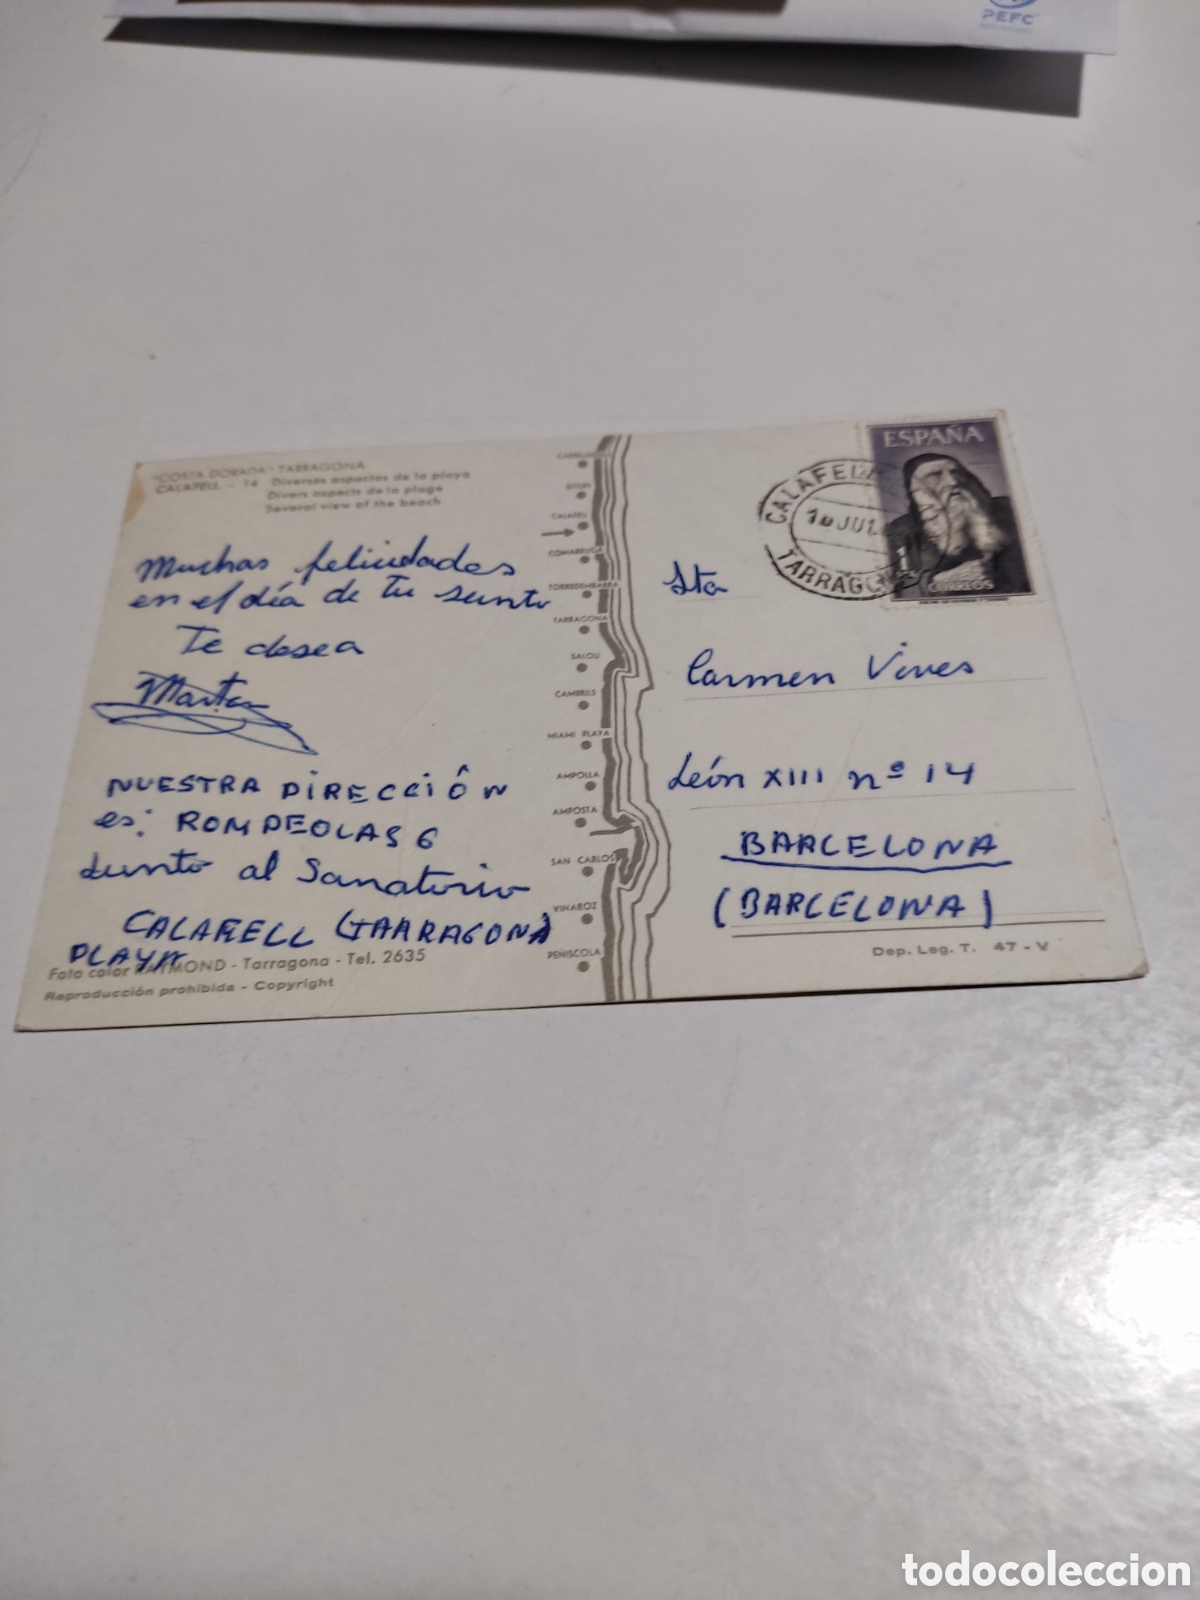 PEFC
"COSTA DORADA" TARRAGONA
CALAFELL - 14 Diversos aspectos de la playa
Divers aspects de la plage
Several view of the beach
Muchas felicidades
en el día de tu santo
Te desea
Marta
NUESTRA DIRECCIÓN
es: ROMPEOLAS 6
Junto al Sanatorio
CALAFELL (TARRAGONA)
PLAYA
Foto color RAYMOND - Tarragona - Tel. 2635
Reproducción prohibida - Copyright
SITGES
CALAFELL
COMARRUGA
TORREDEMBARRA
TARRAGONA
SALOU
CAMBRILS
MIAMI PLAYA
AMPOLLA
AMPOSTA
SAN CARLOS
VINAROZ
PEÑISCOLA
ESPAÑA
CORREOS
CALAFELL
10 JUL
TARRAGO
Sta
Carmen Vives
León XIII nº 14
BARCELONA
(BARCELONA)
Dep. Leg. T. 47-V
todocoleccion